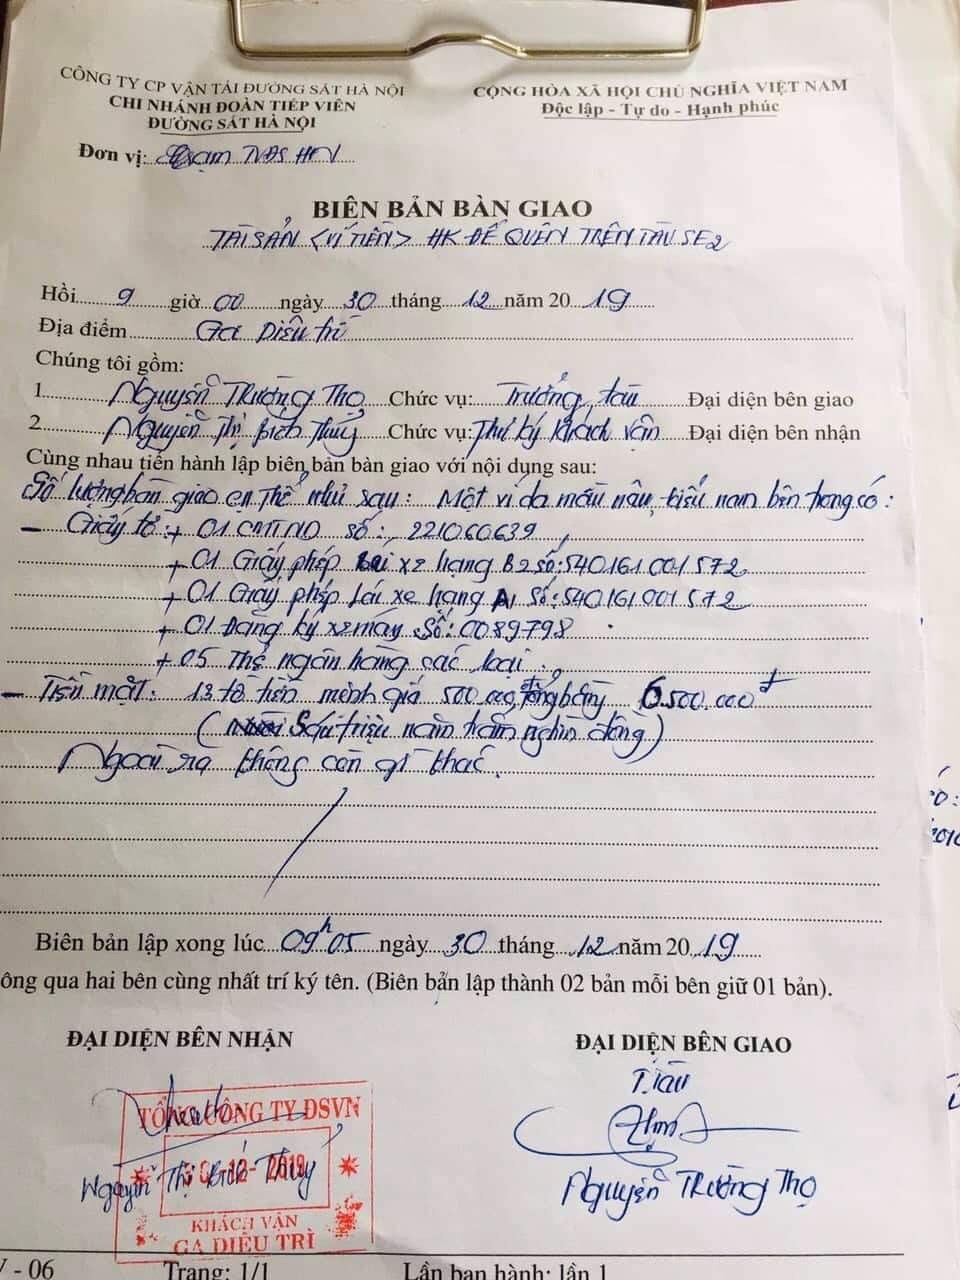 CÔNG TY CP VẬN TẢI ĐƯỜNG SẮT HÀ NỘI
CHI NHÁNH ĐOÀN TIẾP VIÊN
ĐƯỜNG SẮT HÀ NỘI
CỘNG HÒA XÃ HỘI CHỦ NGHĨA VIỆT NAM
Độc lập - Tự do - Hạnh phúc
Đơn vị: Trạm TVĐS HN
BIÊN BẢN BÀN GIAO
TÀI SẢN <VÍ TIỀN> HK ĐỂ QUÊN TRÊN TÀU SE2
Hồi 9 giờ 00 ngày 30 tháng 12 năm 20 19
Địa điểm Ga Diêu trì
Chúng tôi gồm:
1. Nguyễn Trường Thọ Chức vụ: Trưởng tàu Đại diện bên giao
2. Nguyễn Thị Bích Thủy Chức vụ: Thư ký Khách vận Đại diện bên nhận
Cùng nhau tiến hành lập biên bản bàn giao với nội dụng sau:
Số lượng bàn giao cụ thể như sau: Một ví da mầu nâu, kiểu nam bên trong có:
- Giấy tờ + 01 CMTND số: 221060639
+ 01 Giấy phép lái xe hạng B2 số: 540161001572
+ 01 Giấy phép lái xe hạng A1 số: 540161001572
+ 01 Đăng ký xe máy số: 0089798
+ 05 Thẻ ngân hàng các loại.
- Tiền mặt: 13 tờ tiền mệnh giá 500.000đ tổng bằng 6.500.000đ
( Sáu triệu năm trăm nghìn đồng)
Ngoài ra không còn gì khác.
Biên bản lập xong lúc 09h05 ngày 30 tháng 12 năm 20 19
ông qua hai bên cùng nhất trí ký tên. (Biên bản lập thành 02 bản mỗi bên giữ 01 bản).
ĐẠI DIỆN BÊN NHẬN
ĐẠI DIỆN BÊN GIAO
T.Tàu
TỔNG CÔNG TY ĐSVN
30-12-2019
Nguyễn Thị Bích Thủy
Nguyễn Trường Thọ
KHÁCH VẬN
GA DIÊU TRÌ
- 06
Trang: 1/1
Lần ban hành: lần 1